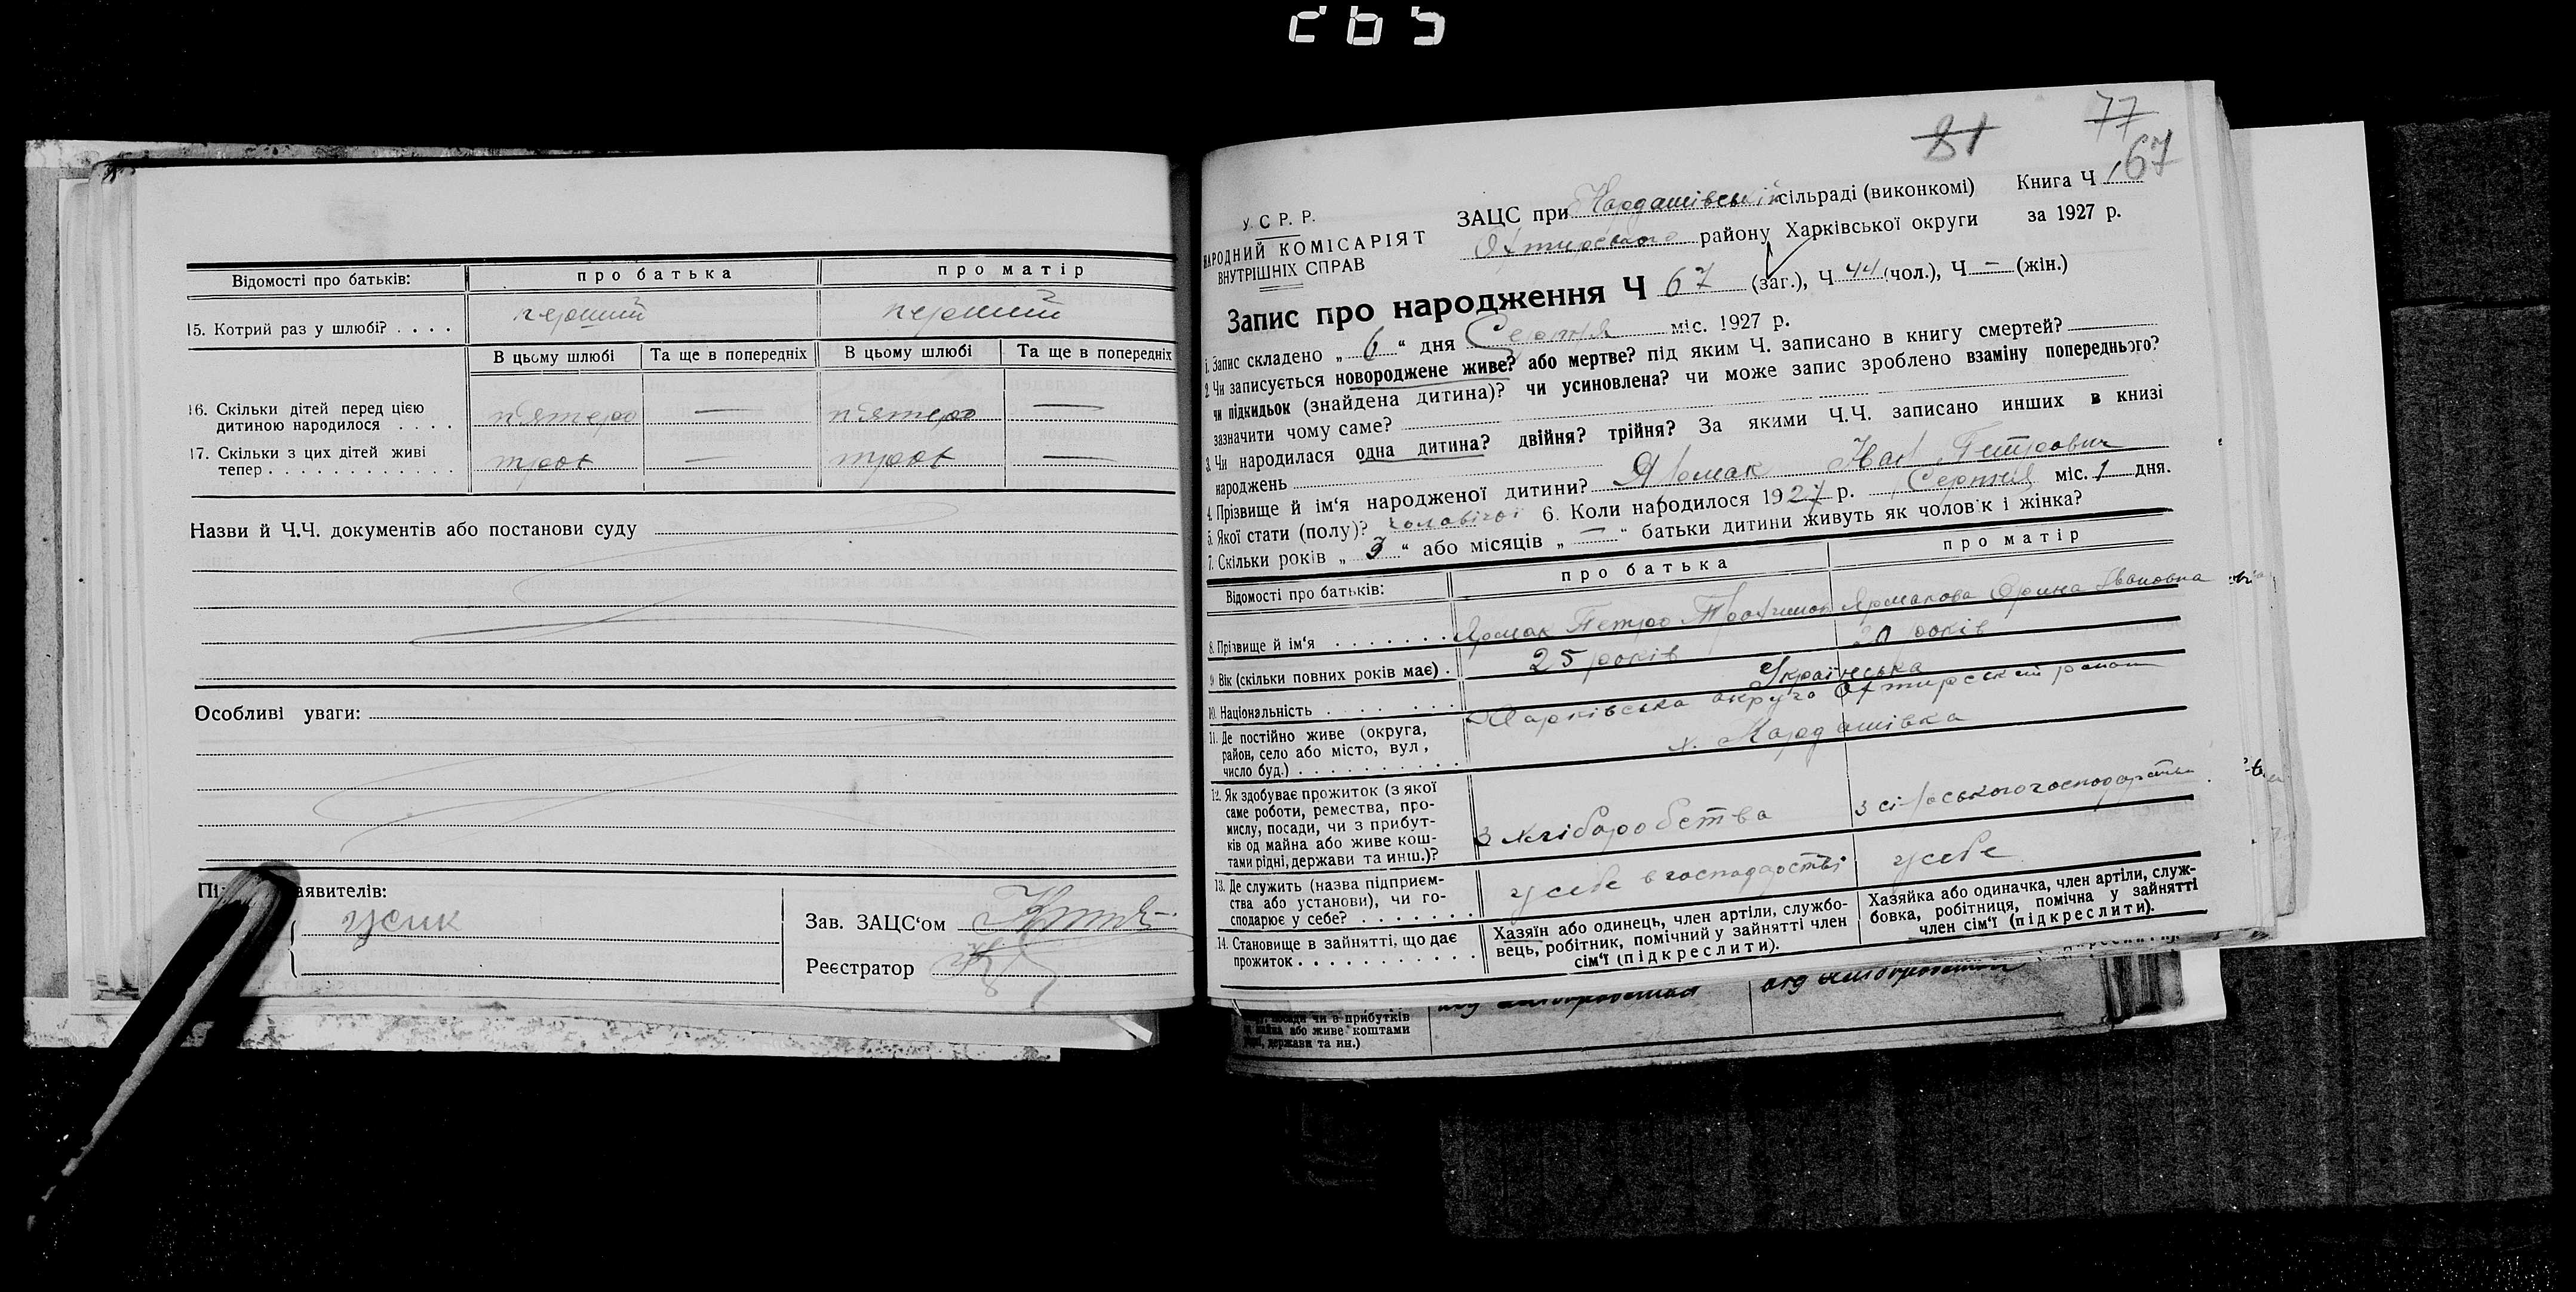 265
Відомості про батьків: про батька про матір
15. Котрий раз у шлюбі? . . . . перший перший
В цьому шлюбі Та ще в попередніх В цьому шлюбі Та ще в попередніх
16. Скільки дітей перед цією
дитиною народилося . . . . п'ятеро — п'ятеро —
17. Скільки з цих дітей живі
тепер . . . . . . . . . . . . троє — троє —
Назви й Ч.Ч. документів або постанови суду
Особливі уваги:
Пі аявителів:
Усик
Зав. ЗАЦС'ом
Реєстратор
81 77
67
У. С. Р. Р.
НАРОДНИЙ КОМІСАРІЯТ
ВНУТРІШНІХ СПРАВ
ЗАЦС при Кардашівській сільраді (виконкомі) Книга Ч 1
Охтирського району Харківської округи за 1927 р.
Запис про народження Ч 67 (заг.), Ч 44 (чол.), Ч — (жін.)
1. Запис складено „ 6 “ дня Серпня міс. 1927 р.
2. Чи записується новороджене живе? або мертве? під яким Ч. записано в книгу смертей?
чи підкидьок (знайдена дитина)? чи усиновлена? чи може запис зроблено взаміну попереднього?
зазначити чому саме?
3. Чи народилася одна дитина? двійня? трійня? За якими Ч.Ч. записано инших в книзі
народжень
4. Прізвище й ім'я народженої дитини? Ярмак Іван Петрович
5. Якої стати (полу)? чоловічої 6. Коли народилося 1927 р. Серпня міс. 1 дня.
7. Скільки років „ 3 “ або місяців „ — “ батьки дитини живуть як чолов'к і жінка?
Відомості про батьків: про батька про матір
8. Прізвище й ім'я . . . . . . . Ярмак Петро Трохимов Ярмакова Орина Івановна
9. Вік (скільки повних років має) . 25 років 20 років
10. Національність . . . . . . . Українська
11. Де постійно живе (округа,
район, село або місто, вул,
число буд.) . . . . . . . . . . . Харківська округа Охтирський район
х. Кардашівка
12. Як здобуває прожиток (з якої
саме роботи, ремества, про-
мислу, посади, чи з прибут-
ків од майна або живе кош-
тами рідні, держави та инш.)? З хліборобства з сільського господарства
13. Де служить (назва підприєм-
ства або установи), чи го-
сподарює у себе? . . . . . . . у себе в господарстві у себе
14. Становище в зайнятті, що дає
прожиток . . . . . . . . . . .
Хазяїн або одинець, член артіли, службо-
вець, робітник, помічний у зайнятті член
сім'ї (підкреслити).
Хазяйка або одиначка, член артіли, служ-
бовка, робітниця, помічна у зайнятті
член сім'ї (підкреслити).
чи в прибутків
або живе коштами
держави та ин.)